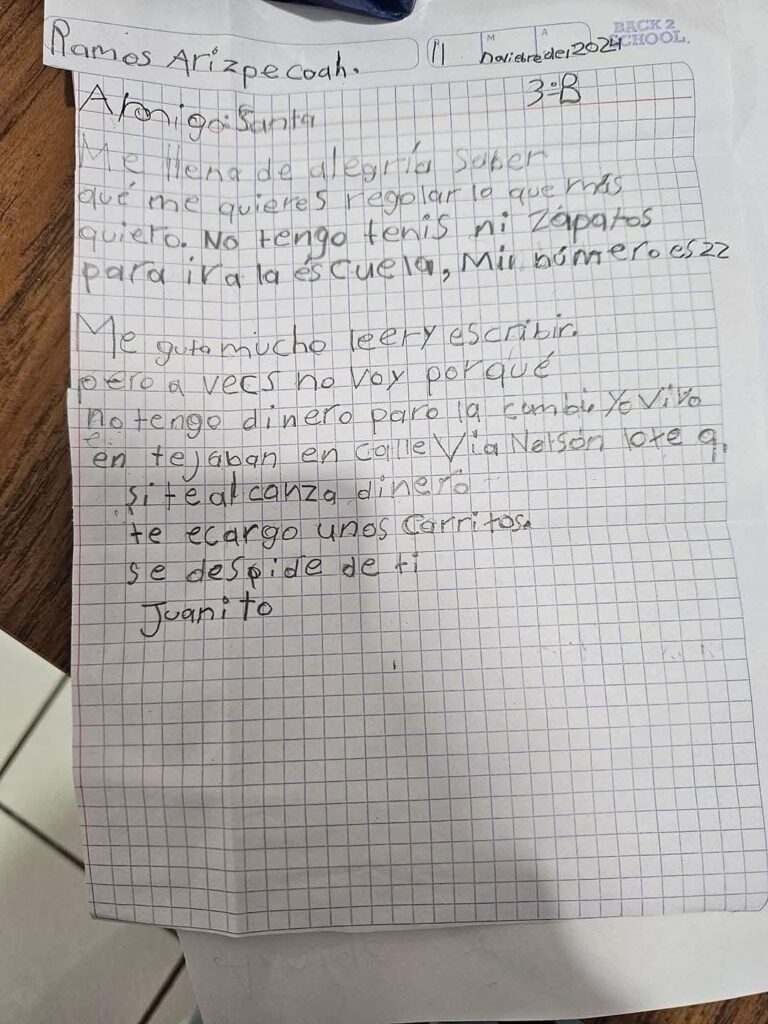 BACK 2
SCHOOL.
M A
Ramos Arizpe coah. 11 noviebredel2024
3=B
Amigo: Santa
Me llena de alegría saber
qué me quieres regolar lo que más
quiero. No tengo tenis ni zápatos
para ir a la éscuela, Mii número es 22
Me guta mucho leer y escribir.
pero a vecs no voy porqué
no tengo dinero para la combi Yo Vivo
en tejaban en calle Vía Nelsón lote 9.
si te alcanza dinero
te ecargo unos carritos.
se despide de ti
Juanito